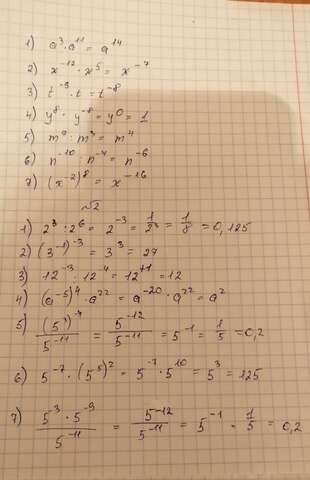 1) a³ · a¹¹ = a¹⁴
2) x⁻¹² · x⁵ = x⁻⁷
3) t⁻⁹ · t = t⁻⁸
4) y⁸ · y⁻⁸ = y⁰ = 1
5) m⁹ : m³ = m⁴
6) n⁻¹⁰ : n⁻⁴ = n⁻⁶
7) (x⁻²)⁸ = x⁻¹⁶
№2
1) 2³ : 2⁶ = 2⁻³ = 1/2³ = 1/8 = 0,125
2) (3⁻¹)⁻³ = 3³ = 27
3) 12⁻³ : 12⁻⁴ = 12⁺¹ = 12
4) (a⁻⁵)⁴ · a²² = a⁻²⁰ · a²² = a²
5) (5³)⁻⁴/5⁻¹¹ = 5⁻¹²/5⁻¹¹ = 5⁻¹ = 1/5 = 0,2
6) 5⁻⁷ · (5⁵)² = 5⁻⁷ · 5¹⁰ = 5³ = 125
7) 5⁻³ · 5⁻⁹/5⁻¹¹ = 5⁻¹²/5⁻¹¹ = 5⁻¹ = 1/5 = 0,2